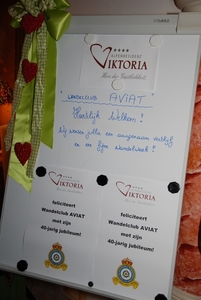 ALPENRESIDENZ
VIKTORIA
Haus der Gastlichkeit
WANDELCLUB AVIAT
Hartelijk Welkom!
Wij wensen jullie een aangenaam verblijf
en een fijne wandelweek!
VIKTORIA
VIKTORIA
feliciteert
Wandelclub AVIAT
met zijn
40-jarig jubileum!
feliciteert
Wandelclub AVIAT
met zijn
40-jarig jubileum!